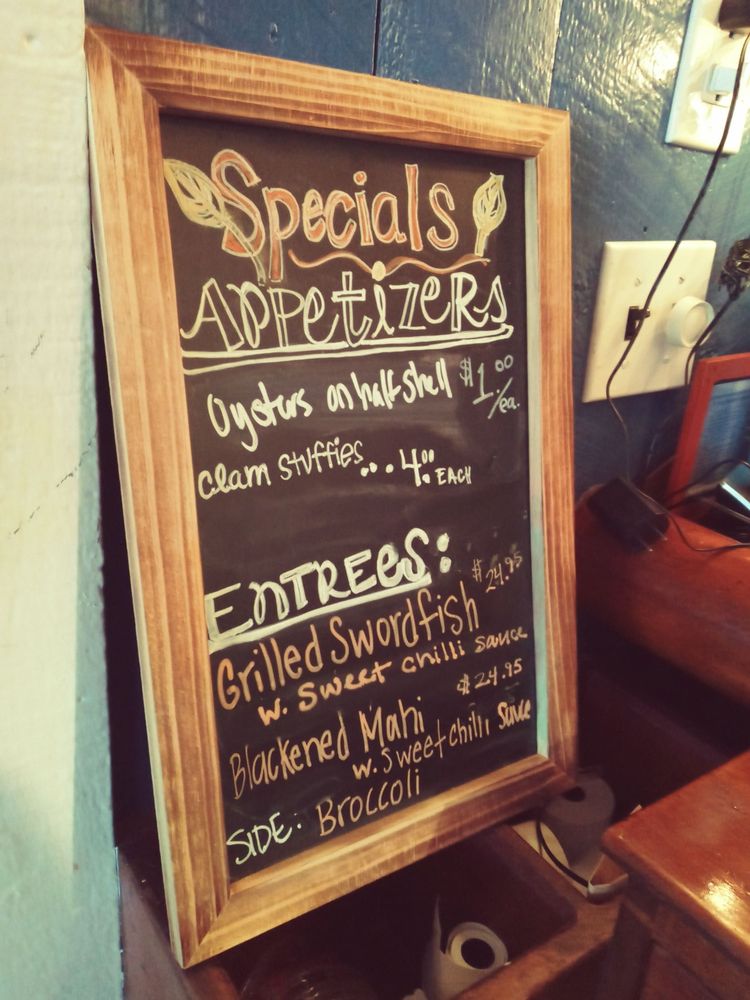 Specials
Appetizers
Oysters on half shell $1.00/ea.
Clam Stuffies...4.00 EACH
ENTREES:
$24.95
Grilled Swordfish
w. Sweet chilli sauce
$24.95
Blackened Mahi
w. Sweet chilli Sauce
SIDE: Broccoli